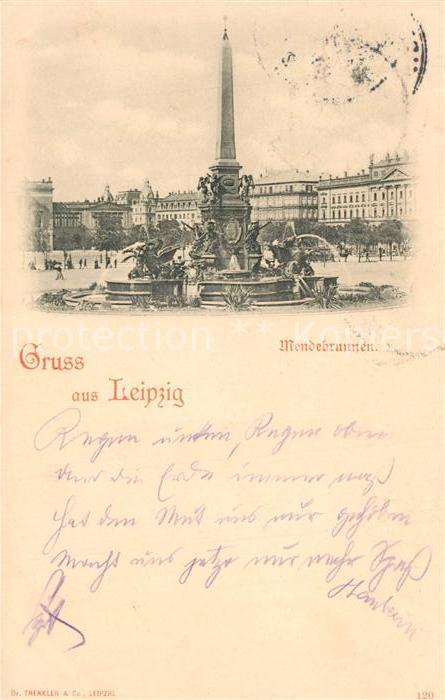 Mendebrunnen.
Gruss
aus Leipzig
Regen unten, Regen oben
Und die Erde immer naß
Hat den Mut uns nur gehoben
Macht uns jetzt nur mehr Spaß
Dr. TRENKLER & Co., LEIPZIG.
120